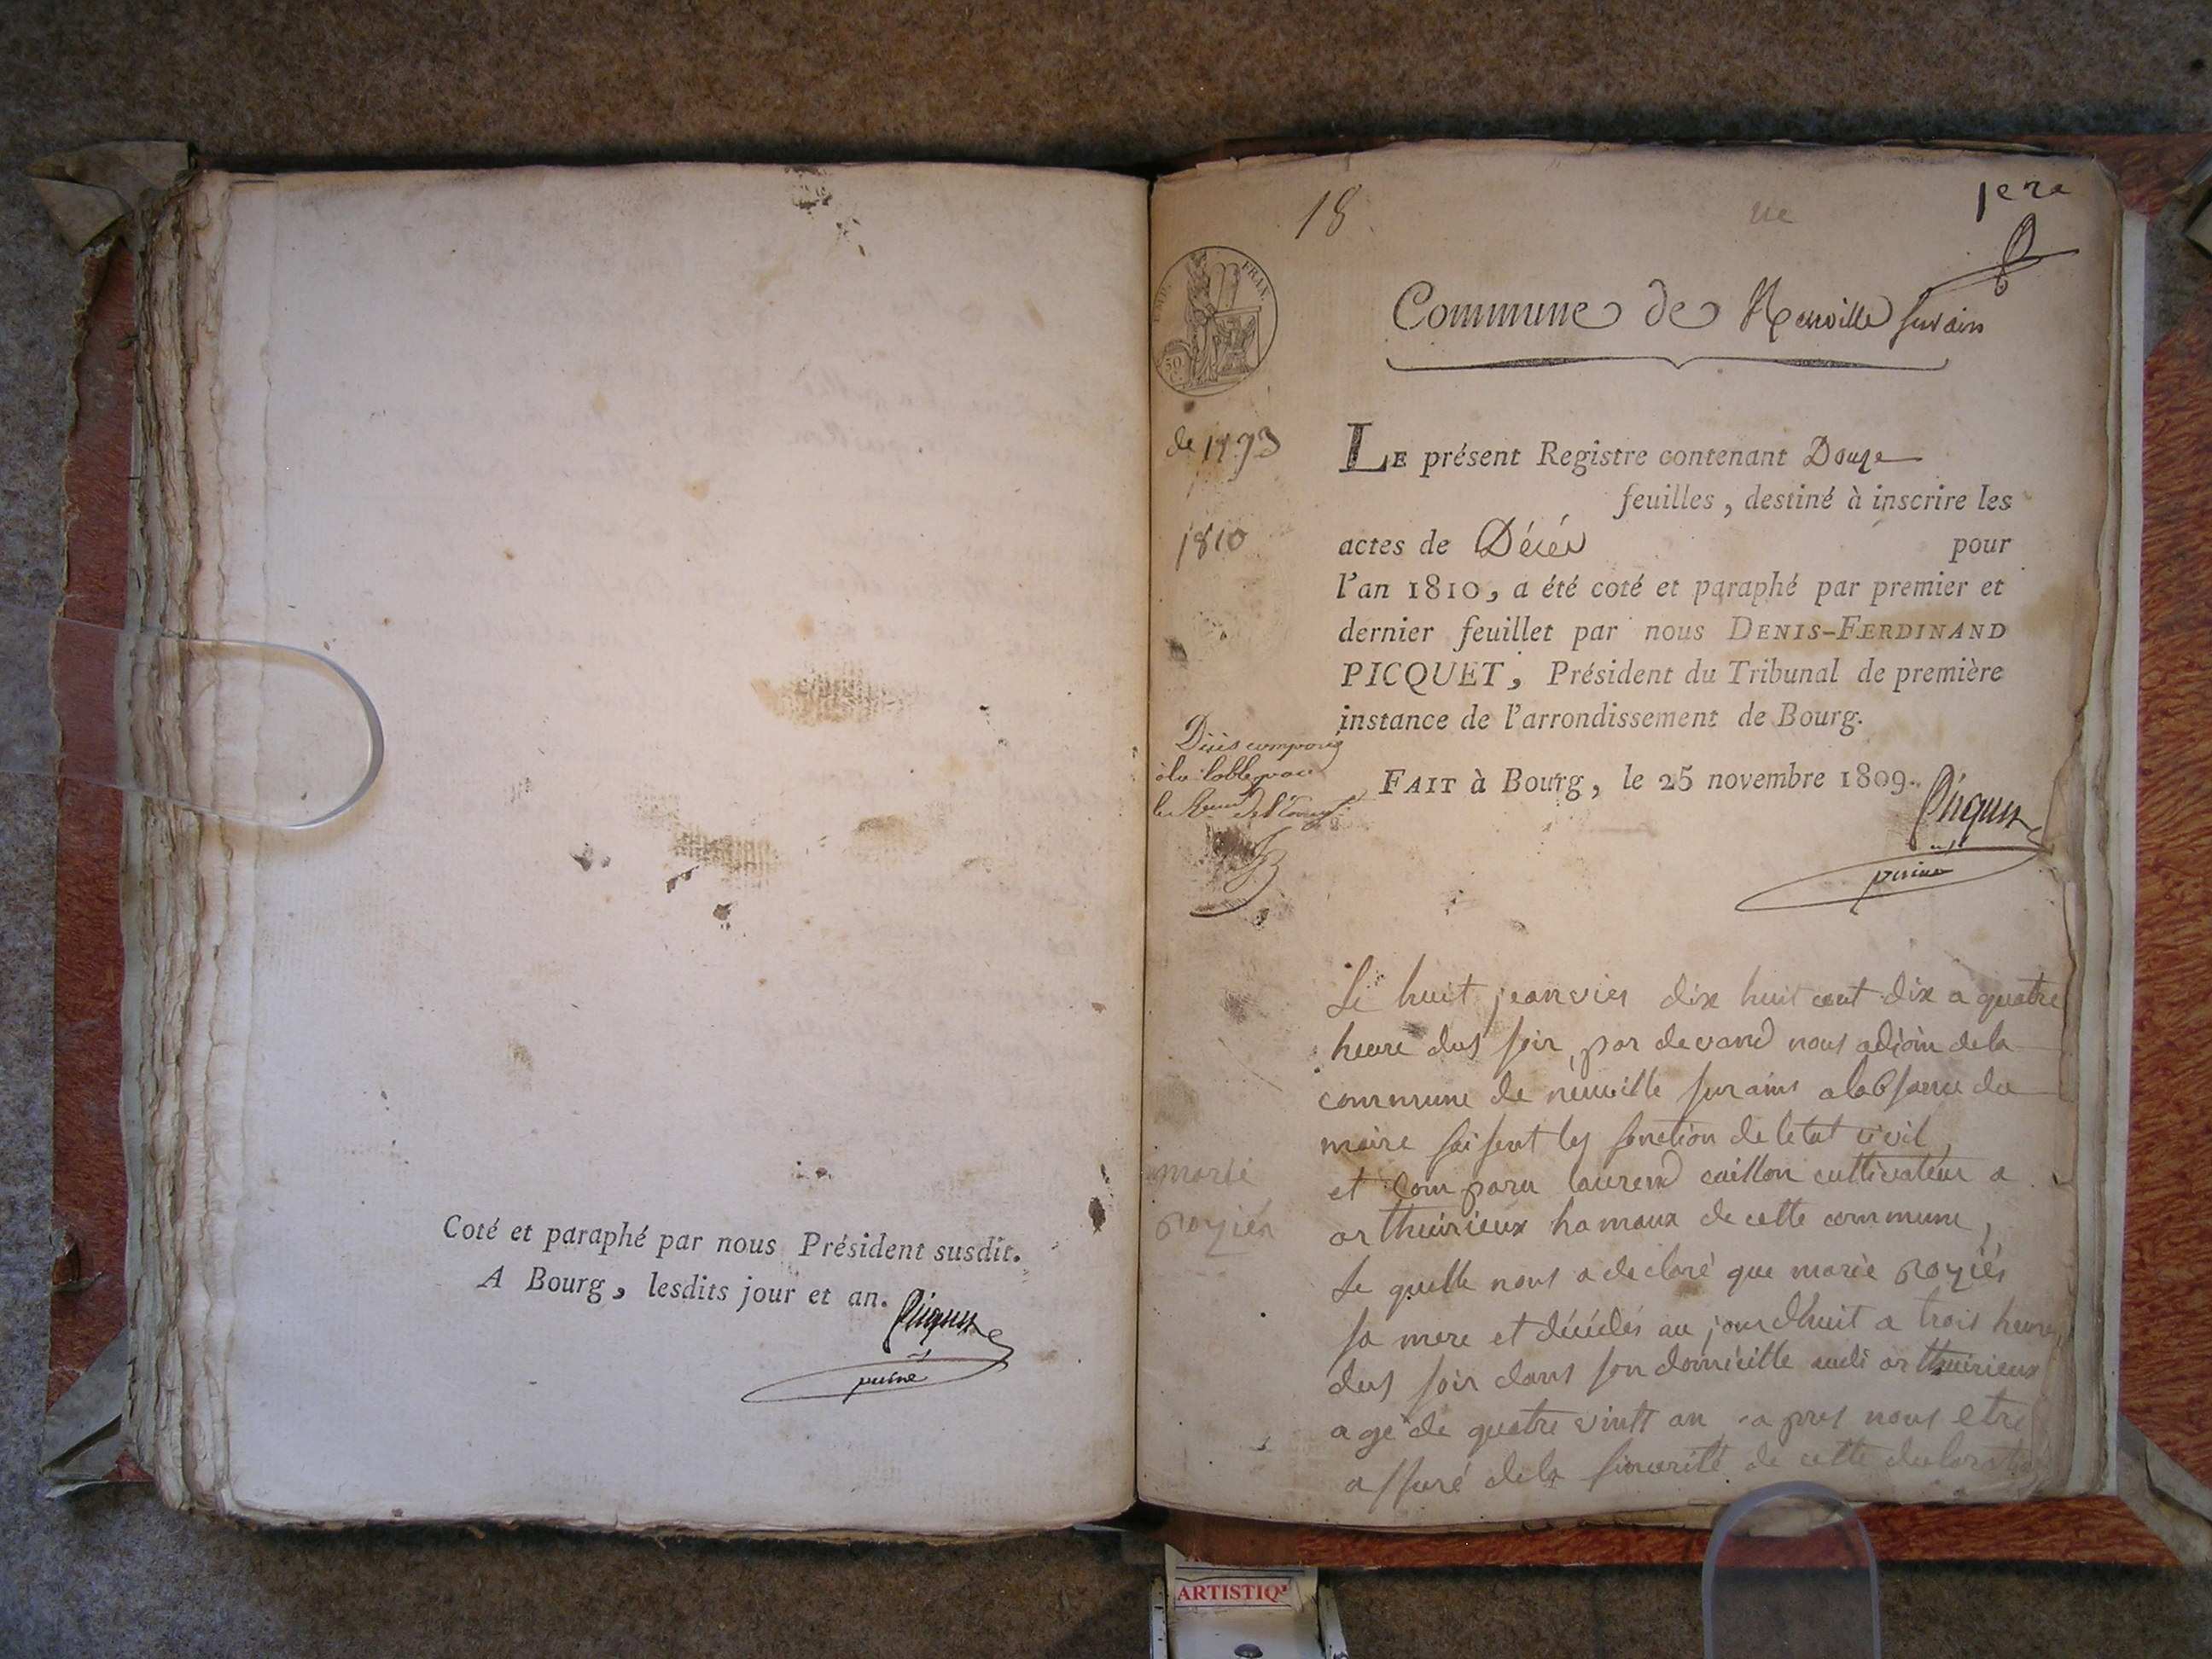 Coté et paraphé par nous Président susdit.
A Bourg, lesdits jour et an.
Picquet
18
1ere
FRAN.
50
Commune de Neuville sur ain
de 1793
LE présent Registre contenant Douze
feuilles, destiné à inscrire les
1810
actes de Décès pour
l'an 1810, a été coté et paraphé par premier et
dernier feuillet par nous DENIS-FERDINAND
PICQUET, Président du Tribunal de première
instance de l'arrondissement de Bourg.
FAIT à Bourg, le 25 novembre 1809.
Picquet
Le huit jeanvier dix huit cent dix a quatre
heure dus soir par devand nous adjoin de la
commune de neuville sur ains a labsance du
maire faisent les fonction de letat civil
et comparu laurend caillon cultivateur a
marie
royier
arthuirieux hamaux de cette commune,
Le quelle nous a declaré que marie royiér
sa mere et décédés au jourdhuit a trois heures
dus soir dans son domicille audi arthuirieux
agé de quatre vintt an apres nous etre
assuré dela sincerité de cette declaration
ARTISTIQ